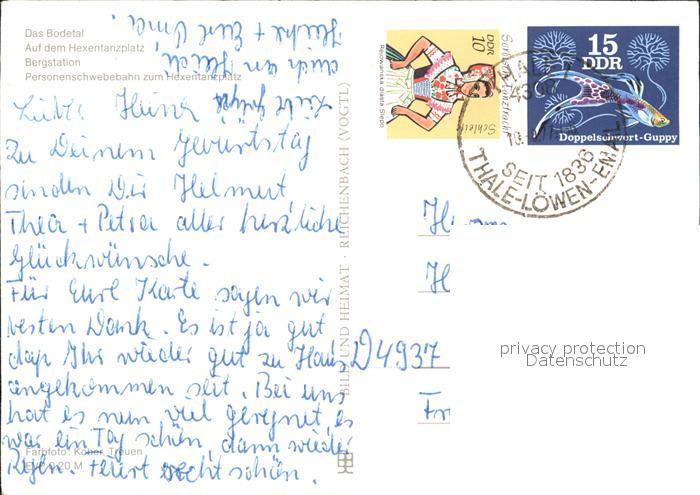 Das Bodetal
Auf dem Hexentanzplatz
Bergstation
Personenschwebebahn zum Hexentanzplatz
Lieber Heinz
Zu Deinem Geburtstag
senden Dir Helmut
Thea + Petra alles herzliche
Glückwünsche.
Für Eure Karte sagen wir
besten Dank. Es ist ja gut
daß Ihr wieder gut zu Haus
angekommen seit. Bei uns
hat es nun viel geregnet, es
war ein Tag schön, dann wieder
Regen. Heut recht schön.
Liebe Grüße
auch an Heidi,
+ Eure Oma.
Farbfoto: Kober, Treuen
EVP 0,20 M
BILD UND HEIMAT · REICHENBACH (VOGTL)
DDR
10
Schleife
15
DDR
Doppelschwert-Guppy
SEIT 1836
THALE-LÖWEN-EN
D 4937
Fr
privacy protection
Datenschutz